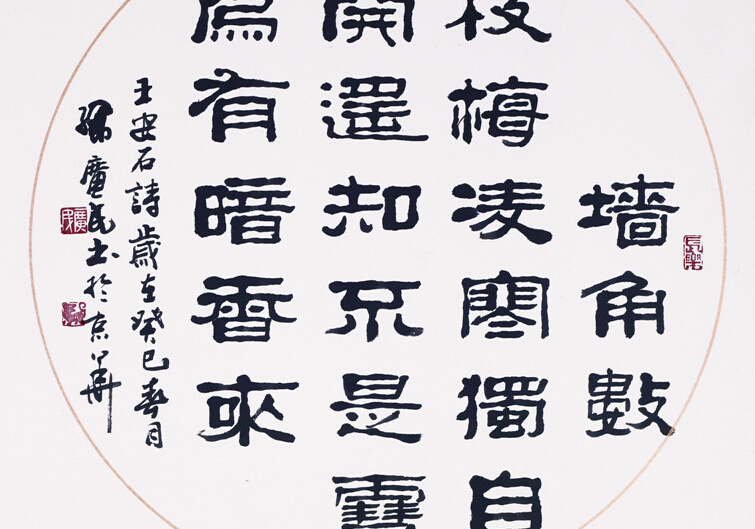 墙角數
枝梅凌寒獨自
開遥知不是雪
爲有暗香來
王安石詩歲在癸巳春月
廣民书於京華
長樂